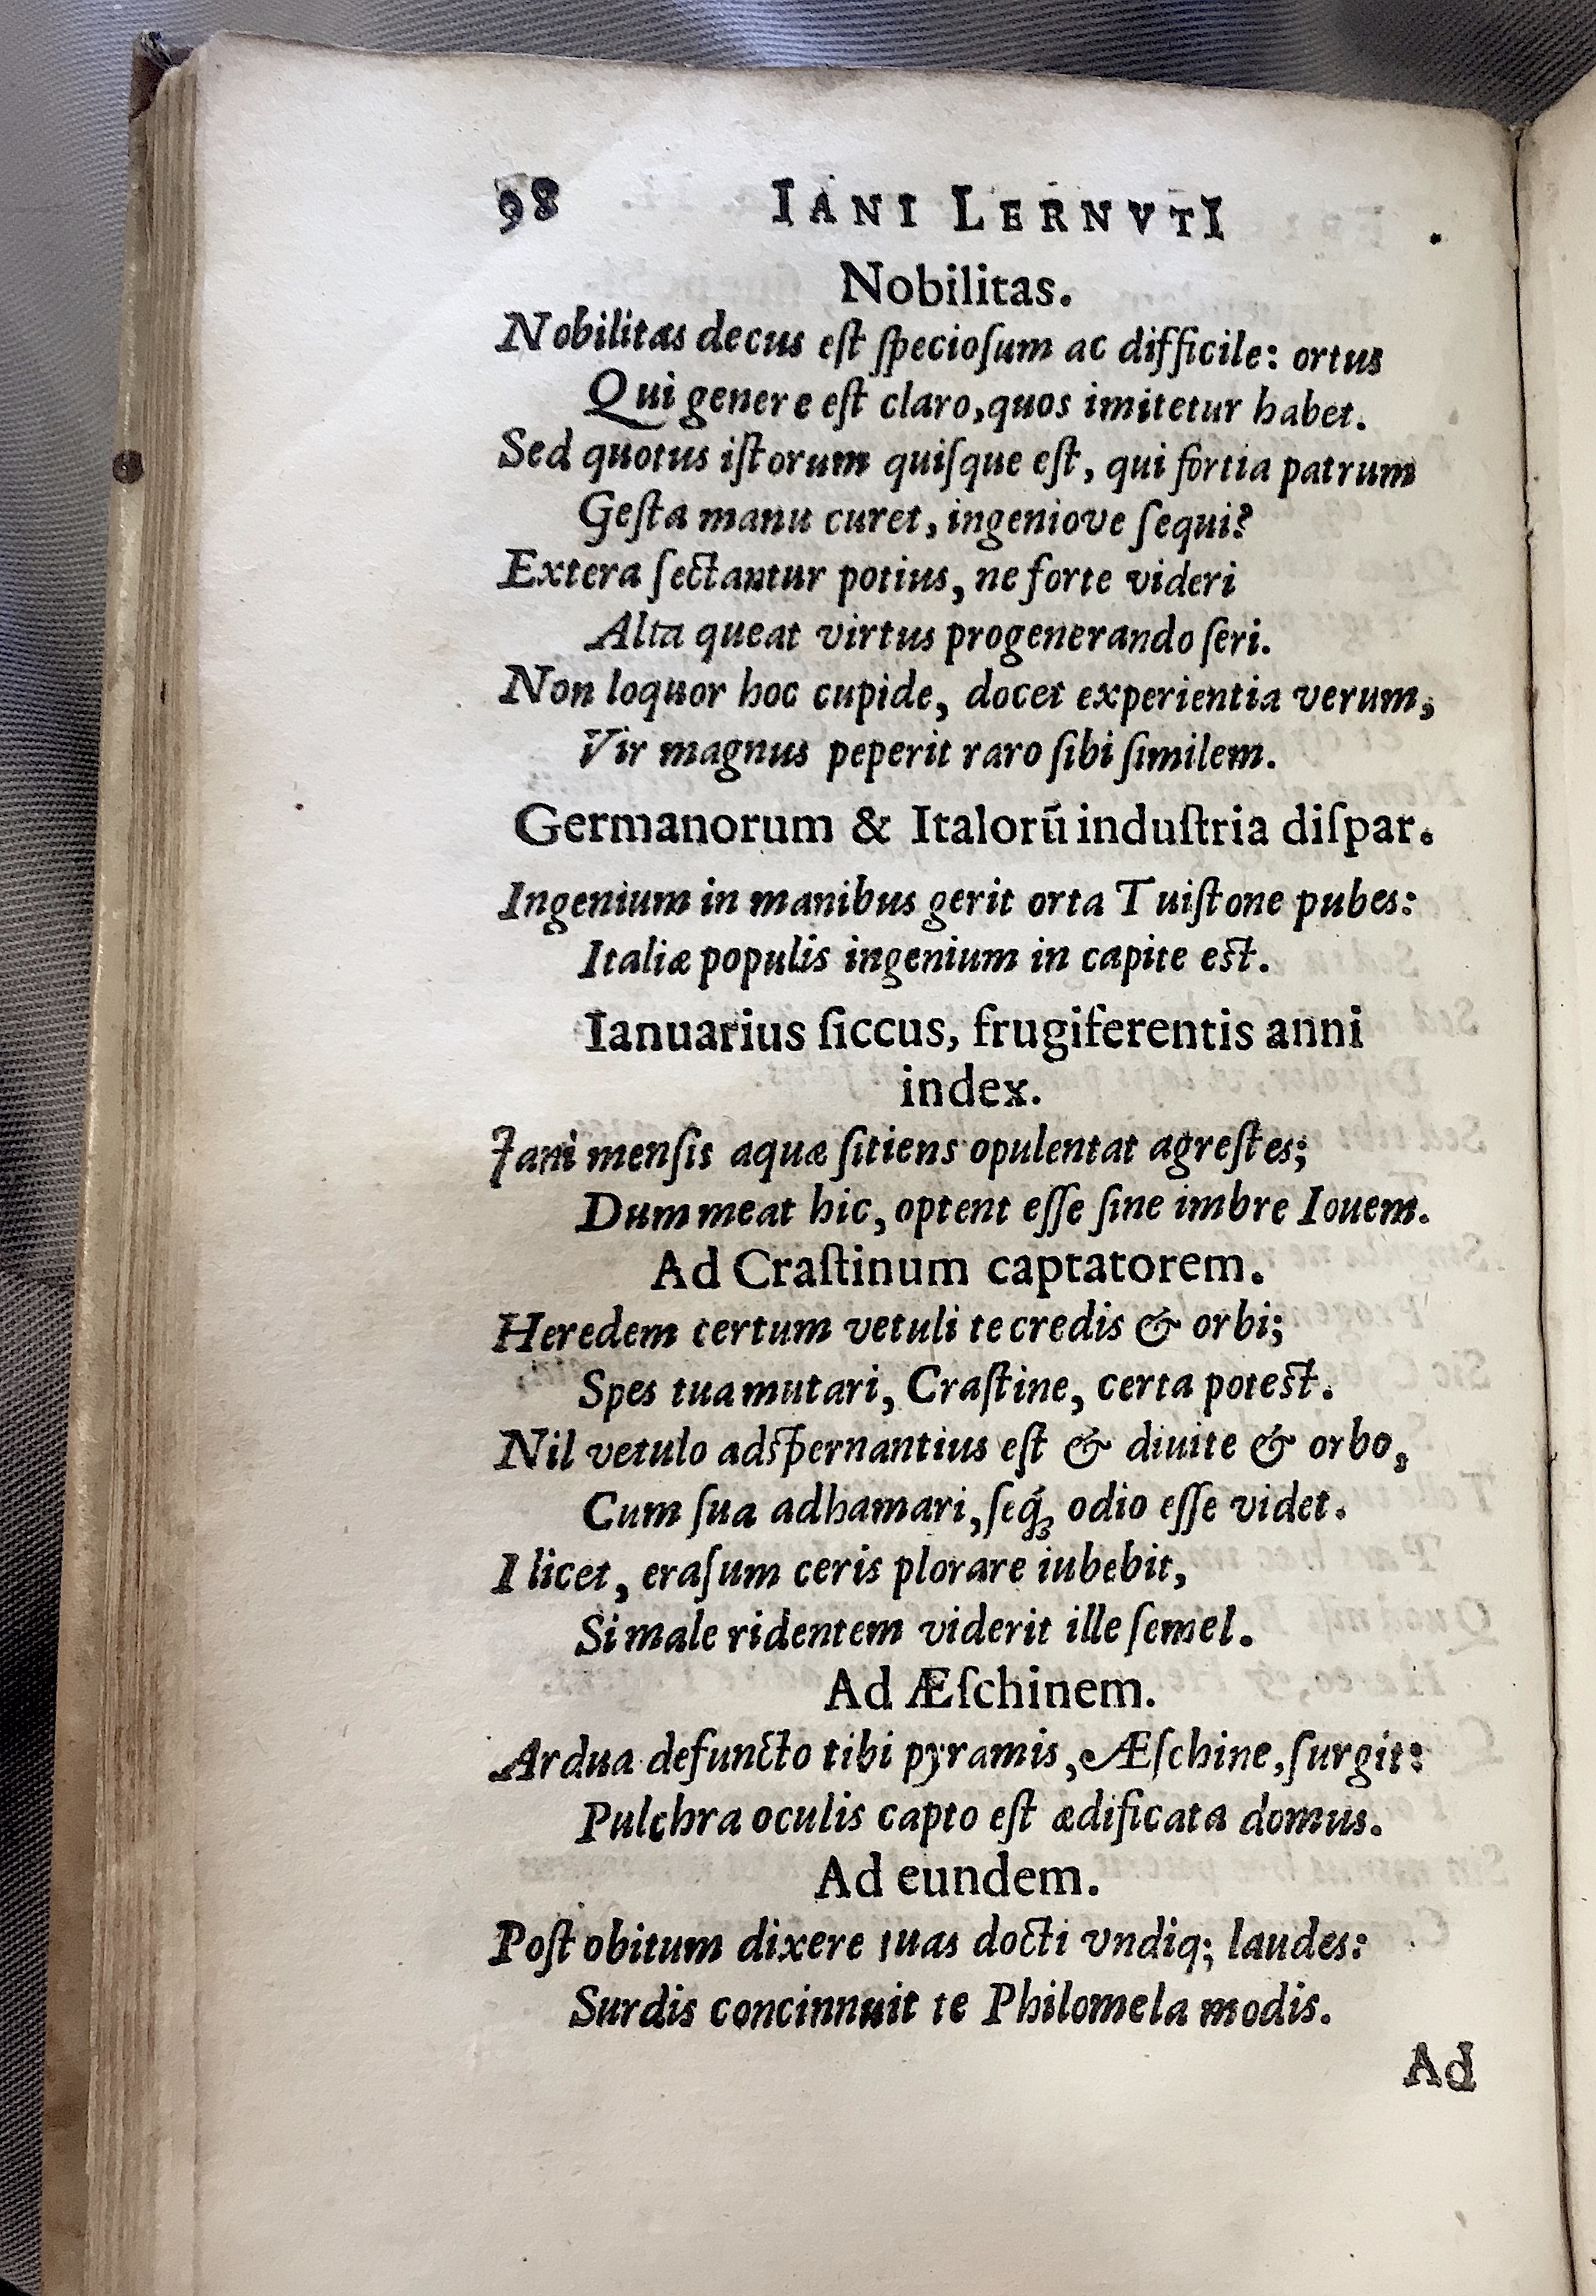 98 IANI LERNVTI
Nobilitas.
Nobilitas decus eſt ſpecioſum ac difficile: ortus
Qui genere eſt claro, quos imitetur habet.
Sed quotus iſtorum quiſque eſt, qui fortia patrum
Geſta manu curet, ingeniove ſequi?
Extera ſectantur potius, ne forte videri
Alta queat virtus progenerando ſeri.
Non loquor hoc cupide, docet experientia verum,
Vir magnus peperit raro ſibi ſimilem.
Germanorum & Italorũ induſtria diſpar.
Ingenium in manibus gerit orta Tuiſtone pubes:
Italiæ populis ingenium in capite eſt.
Ianuarius ſiccus, frugiferentis anni
index.
Jani menſis aquæ ſitiens opulentat agreſtes;
Dum meat hic, optent eſſe ſine imbre Iouem.
Ad Craſtinum captatorem.
Heredem certum vetuli te credis & orbi;
Spes tua mutari, Craſtine, certa poteſt.
Nil vetulo adſpernantius eſt & diuite & orbo,
Cum ſua adhamari, ſeq́ꝫ odio eſſe videt.
I licet, eraſum ceris plorare iubebit,
Si male ridentem viderit ille ſemel.
Ad Æſchinem.
Ardua defuncto tibi pyramis, Æſchine, ſurgit:
Pulchra oculis capto eſt ædificata domus.
Ad eundem.
Poſt obitum dixere tuas docti vndiq; laudes:
Surdis concinnuit te Philomela modis.
Ad